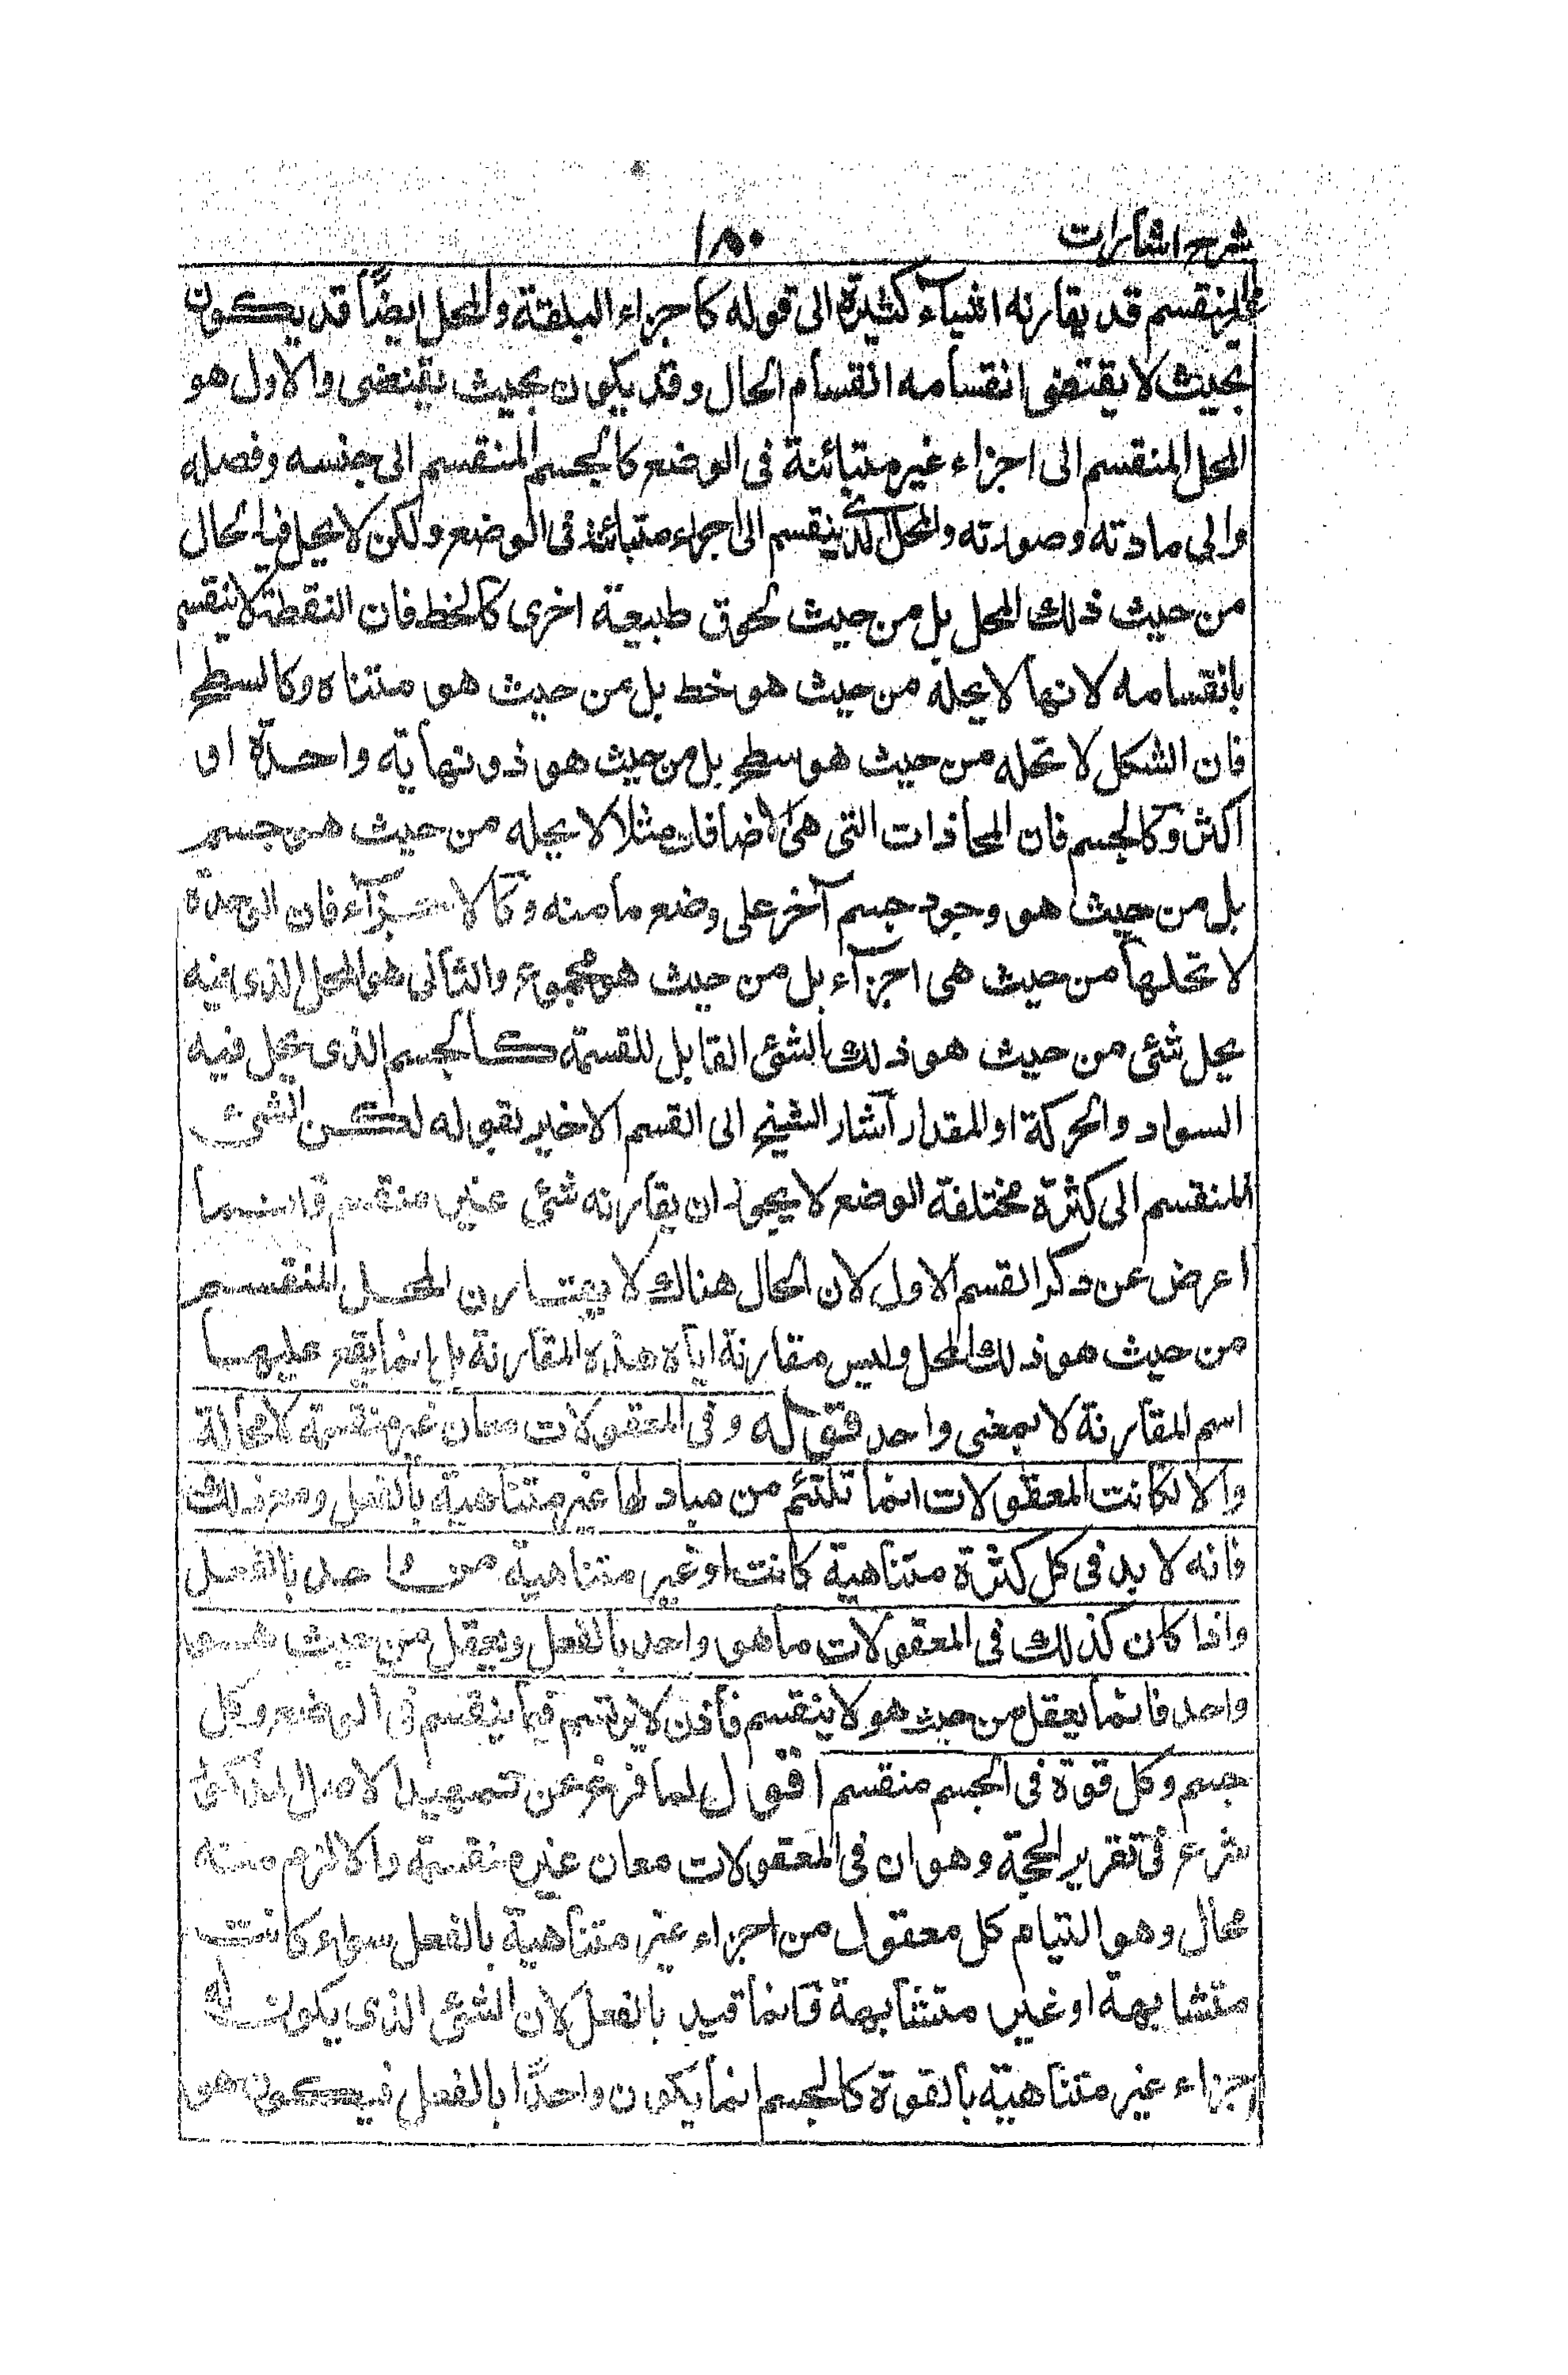 شرح اشارات ١٨٠
المنقسم قد يقارنه اشيآء كثيرة الى قوله كاجزاء البلقة والمحل ايضاً قد يكون
بحيث لا يقتضى انقسامه انقسام الحال وقد يكون بحيث يقتضى والاول هو
المحل المنقسم الى اجزاء غير متبائنة فى الوضع كالجسم المنقسم الى جنسه وفصله
والى مادته وصورته والمحل الذى ينقسم الى اجزاء متبائنة فى الوضع ولكن لا يحل فيه الحال
من حيث ذلك المحل بل من حيث لحوق طبيعة اخرى كالخط فان النقطة لا ينقسم
بانقسامه لانها لا يحله من حيث هو خط بل من حيث هو متناه وكالسطح
فان الشكل لا تحله من حيث هو سطح بل من حيث هو ذو نهاية واحدة او
اكثر وكالجسم فان المحاذات التى هى الاضافات مثلا لا يحله من حيث هو جسم
بل من حيث هو وجود جسم آخر على وضع ما منه وكالاجزآء فان الوحدة
لا تحلها من حيث هى اجزآء بل من حيث هو مجموع والثانى هو المحل الذى فيه
يحل شئ من حيث هو ذلك الشئ القابل للقسمة كالجسم الذى يحل فيه
السواد والحركة او المقدار آشار الشيخ الى القسم الاخير بقوله لكن الشئ
المنقسم الى كثرة مختلفة الوضع لا يجوز ان يقارنه شئ غير منقسم وانما
اعرض عن ذكر القسم الاول لان الحال هناك لا يقارن المحل المنقسم
من حيث هو ذلك المحل وليس مقارنة اياه هذه المقارنة بل انما يقع عليهما
اسم المقارنة لا بمعنى واحد قوله وفى المعقولات معان غير منقسمة لا محالة
والا لكانت المعقولات انما تلتئم من مباد لها غير متناهية بالفعل ومع ذلك
فانه لا بد فى كل كثرة متناهية كانت او غير متناهية من واحد بالفعل
واذا كان كذلك فى المعقولات ما هو واحد بالفعل ويعقل من حيث هو
واحد فانما يعقل من حيث هو لا ينقسم فأذن لا يرتسم فيما ينقسم فى الوضع وكل
جسم وكل قوة فى الجسم منقسم اقول لما فرغ عن تمهيد الاصل المذكور
شرع فى تقرير الحجة وهو ان فى المعقولات معان غير منقسمة والا لزم منه
محال وهو التيام كل معقول من اجزاء غير متناهية بالفعل سواء كانت
متشابهة او غير متشابهة وانما قيد بالفعل لان الشئ الذى يكون له
اجزاء غير متناهية بالقوة كالجسم انما يكون واحدًا بالفعل فيكون هو